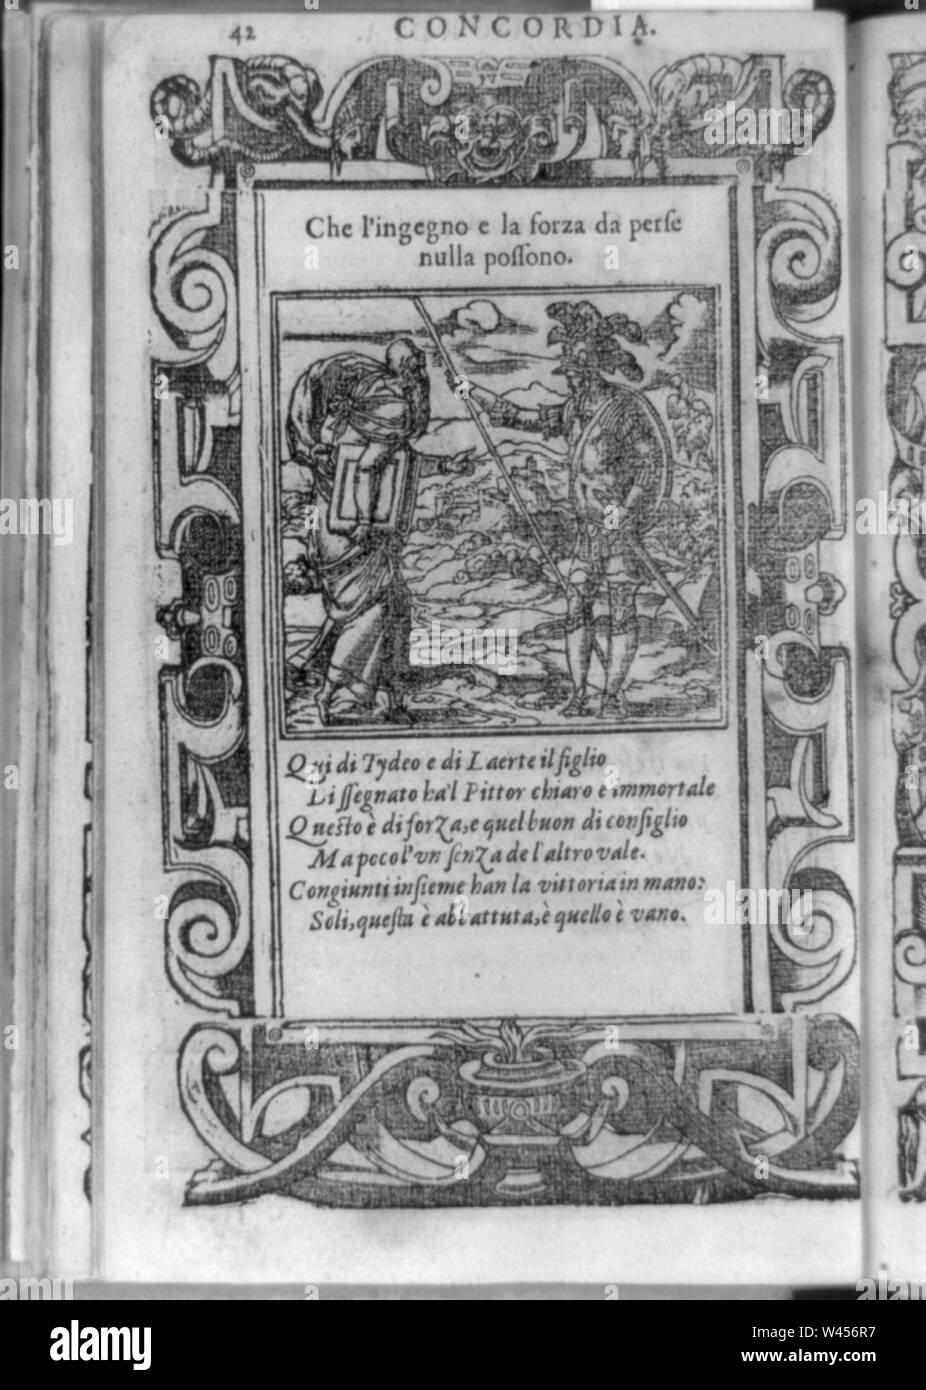 42 CONCORDIA.
Che l'ingegno e la forza da perſe
nulla poſſono.
Qui di Tydeo e di Laerte il figlio
Diſſegnato ha'l Pittor chiaro e immortale
Queſto è di forza, e quel buon di conſiglio
Ma poco l'vn ſenza de l'altro vale.
Congiunti inſieme han la vittoria in mano:
Soli, queſta è abbattuta, è quello è vano.
alamy
Image ID: W456R7
www.alamy.com